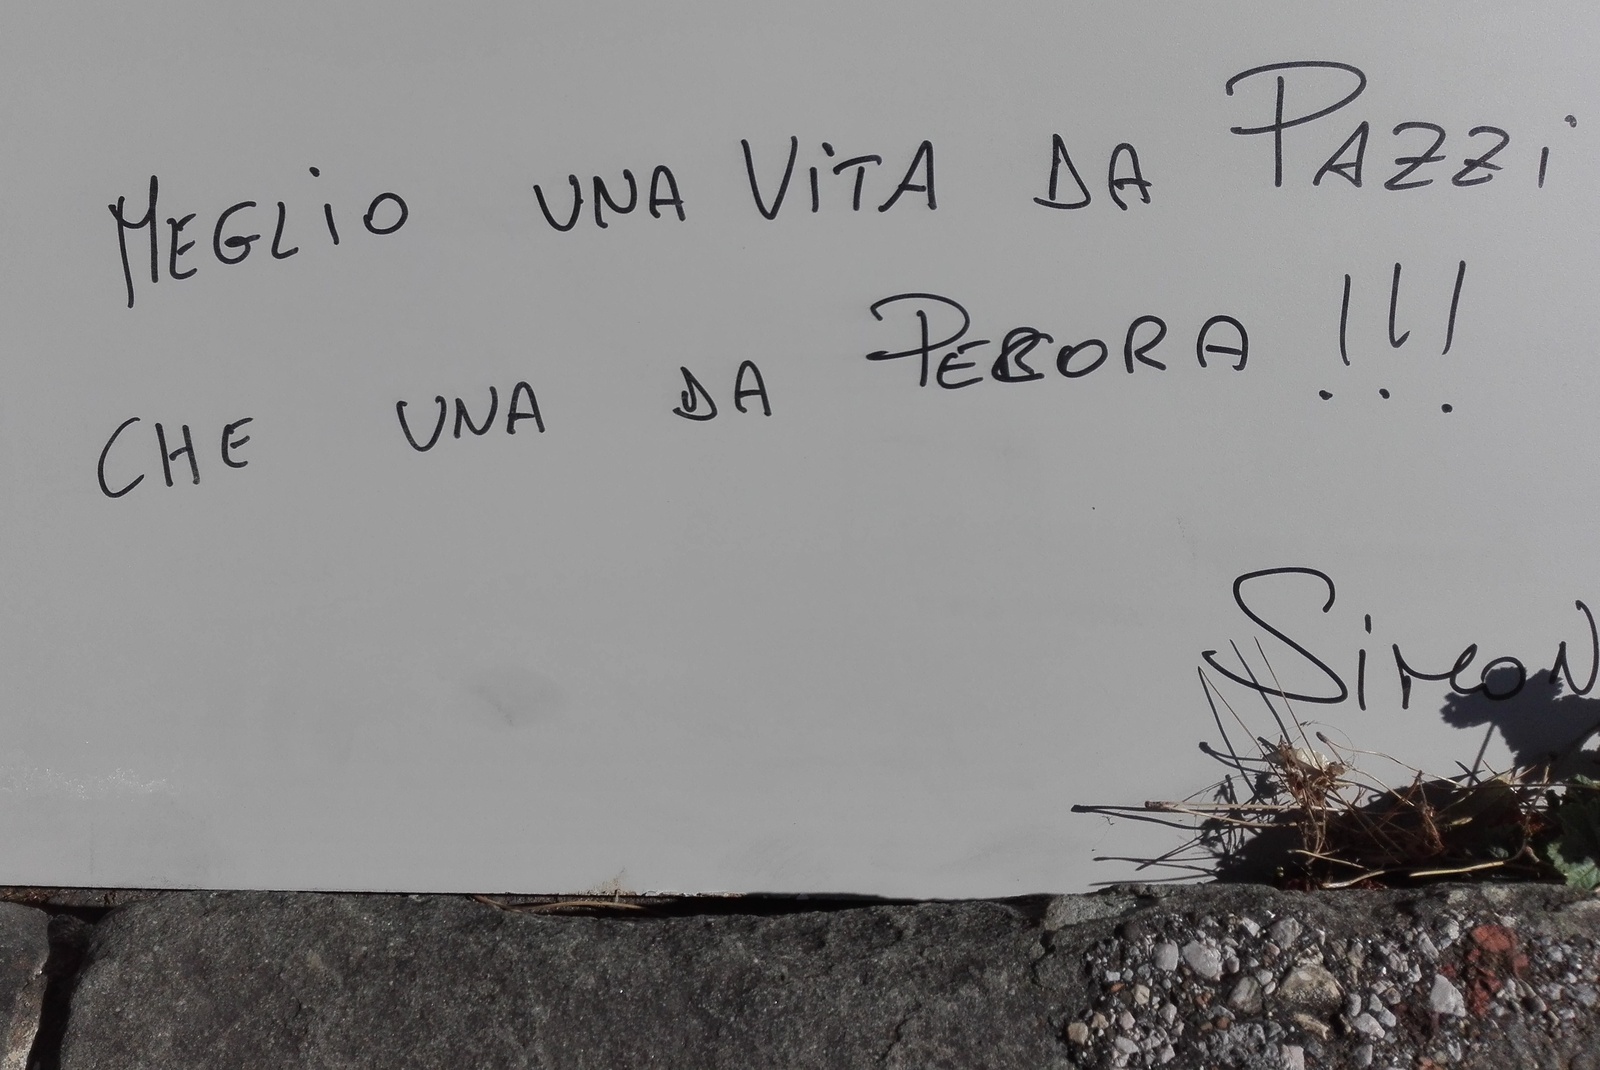 MEGLIO UNA VITA DA PAZZI
CHE UNA DA PECORA !!!
SIMON